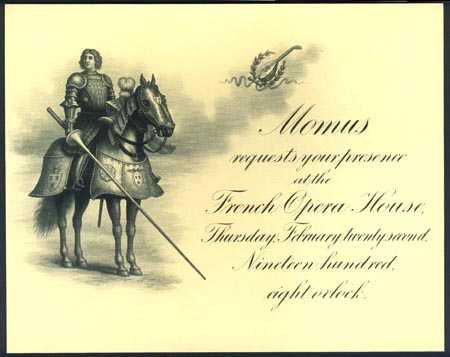 Momus
requests your presence
at the
French Opera House,
Thursday, February twenty second,
Nineteen hundred,
eight o'clock.